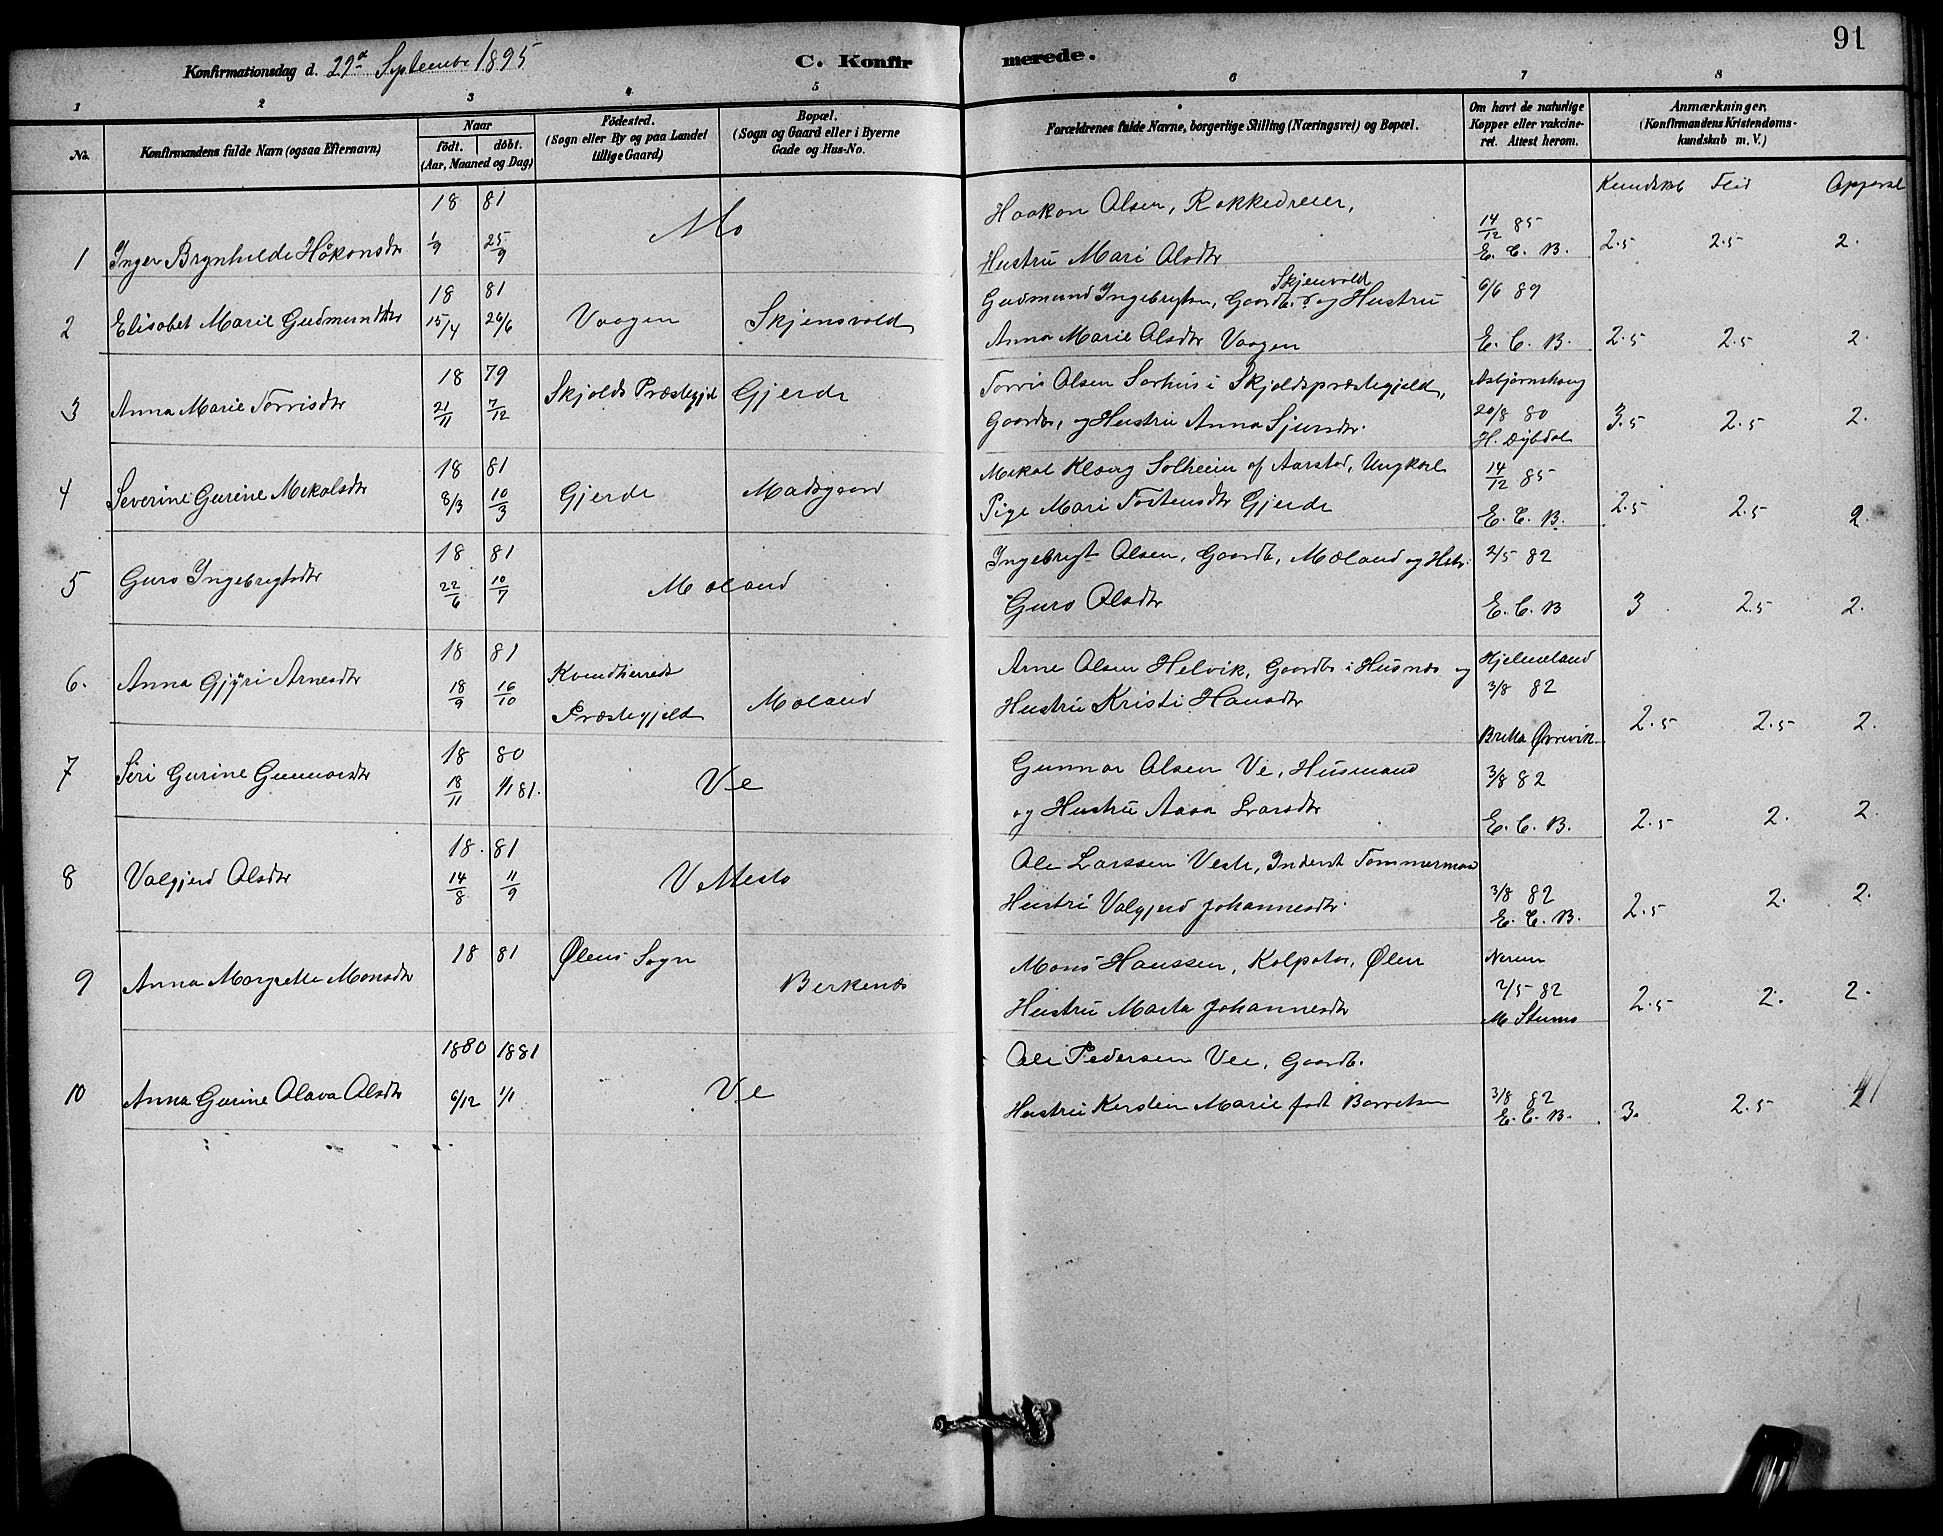 91
Konfirmationsdag d. 29d Septembr 1895
C. Konfirmerede.
1 2 3 4 5 6 7 8
No.
Konfirmandens fulde Navn (ogsaa Efternavn)
Naar
födt. döbt.
(Aar, Maaned og Dag)
Födested.
(Sogn eller By og paa Landet
tillige Gaard)
Bopæl.
(Sogn og Gaard eller i Byerne
Gade og Hus-No.
Forældrenes fulde Navne, borgerlige Stilling (Næringsvei) og Bopæl.
Om havt de naturlige
Kopper eller vakcine-
ret. Attest herom.
Anmærkninger.
(Konfirmandens Kristendoms-
kundskab m. V.)
Kundskab Flid Opførsel
18 81 Haakon Olsen, Rokkedreier, 14/12 85
1 Inger Brynhilde Håkonsdtr 1/9 25/9 Mo Hustru Mari Olsdtr E. C. B. 2.5 2.5 2.
18 81 Gudmund Ingebrigtsen, Gaardb. Skjensvold og Hustru 9/6 89
2 Elisabet Marie Gudmundsdtr 15/4 26/6 Vaagen Skjensvold Anna Marie Olsdtr Vaagen E. C. B. 2.5 2.5 2.
18 79 Skjolds Præstegjeld Gjerde Torris Olsen Sørhus i Skjoldspræstegjeld, Asbjørnshaug
3 Anna Marie Torrisdtr 21/11 7/12 Gaardbr, og Hustru Anna Sjursdtr. 20/8 80 H. Dybdal 3.5 2.5 2.
18 81 Mikal Kloug Solheim af Aarstad, Ungkarl 14/12 85
4 Severine Gurine Mikalsdtr 8/3 10/3 Gjerde Madsgaard Pige Mari Tostensdtr Gjerde E. C. B. 2.5 2.5 2.
18 81 Ingebrigt Olsen, Gaardb, Mæland og Hstr. 2/5 82
5 Guro Ingebrigtsdtr 22/6 10/7 Mæland Guro Olsdtr E. C. B 3 2.5 2.
18 81 Kvindherreds Arne Olsen Helvik, Gaardbr i Husnæs og Hjelmeland
6. Anna Gjÿri Arnesdtr 18/9 16/10 Præstegjeld Mæland Hustru Kristi Hansdtr 3/8 82 2.5 2.5 2.
Britta Øvrevik
7 Siri Gurine Gunnarsdtr 18 80 Ve Gunnar Olsen Ve, Husmand 3/8 82
18/11 1/1 81. og Hustru Aasa Larsdtr E. C. B. 2.5 2. 2.
18. 81 Ole Larssen Veste, Inderst Tømmermand
8 Valgjerd Olsdtr 14/8 11/9 Hustru Valgjerd Johannesdtr. 3/8 82 E. C. B. 2.5 2. 2.
18 81 Ølens Sogn Mons Hanssen, Kolpotør, Ølen
9 Anna Margrethe Monsdtr Berkenæs Hustru Marta Johannesdtr 2/5 82 2.5 2. 2.
1880 1881 Ole Pedersen Vee, Gaardb.
10 Anna Gurine Olava Olsdtr 6/12 1/1 Ve Hustru Kersten Marie født Barretsen 3/8 82 E. C. B. 3. 2.5